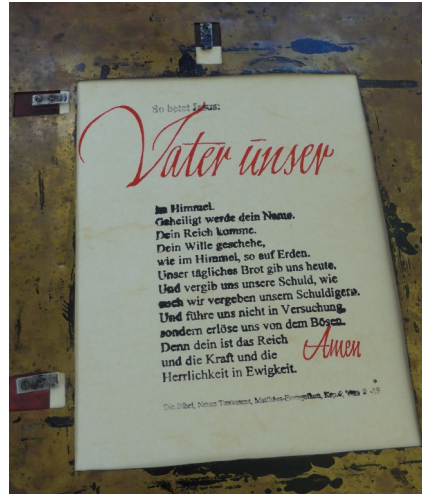 So betet Jesus:
Vater unser
im Himmel.
Geheiligt werde dein Name.
Dein Reich komme.
Dein Wille geschehe,
wie im Himmel, so auf Erden.
Unser tägliches Brot gib uns heute.
Und vergib uns unsere Schuld, wie
auch wir vergeben unsern Schuldigern.
Und führe uns nicht in Versuchung,
sondern erlöse uns von dem Bösen.
Denn dein ist das Reich
und die Kraft und die
Herrlichkeit in Ewigkeit.
Amen
Die Bibel, Neues Testament, Matthäus-Evangelium, Kap.6, Vers